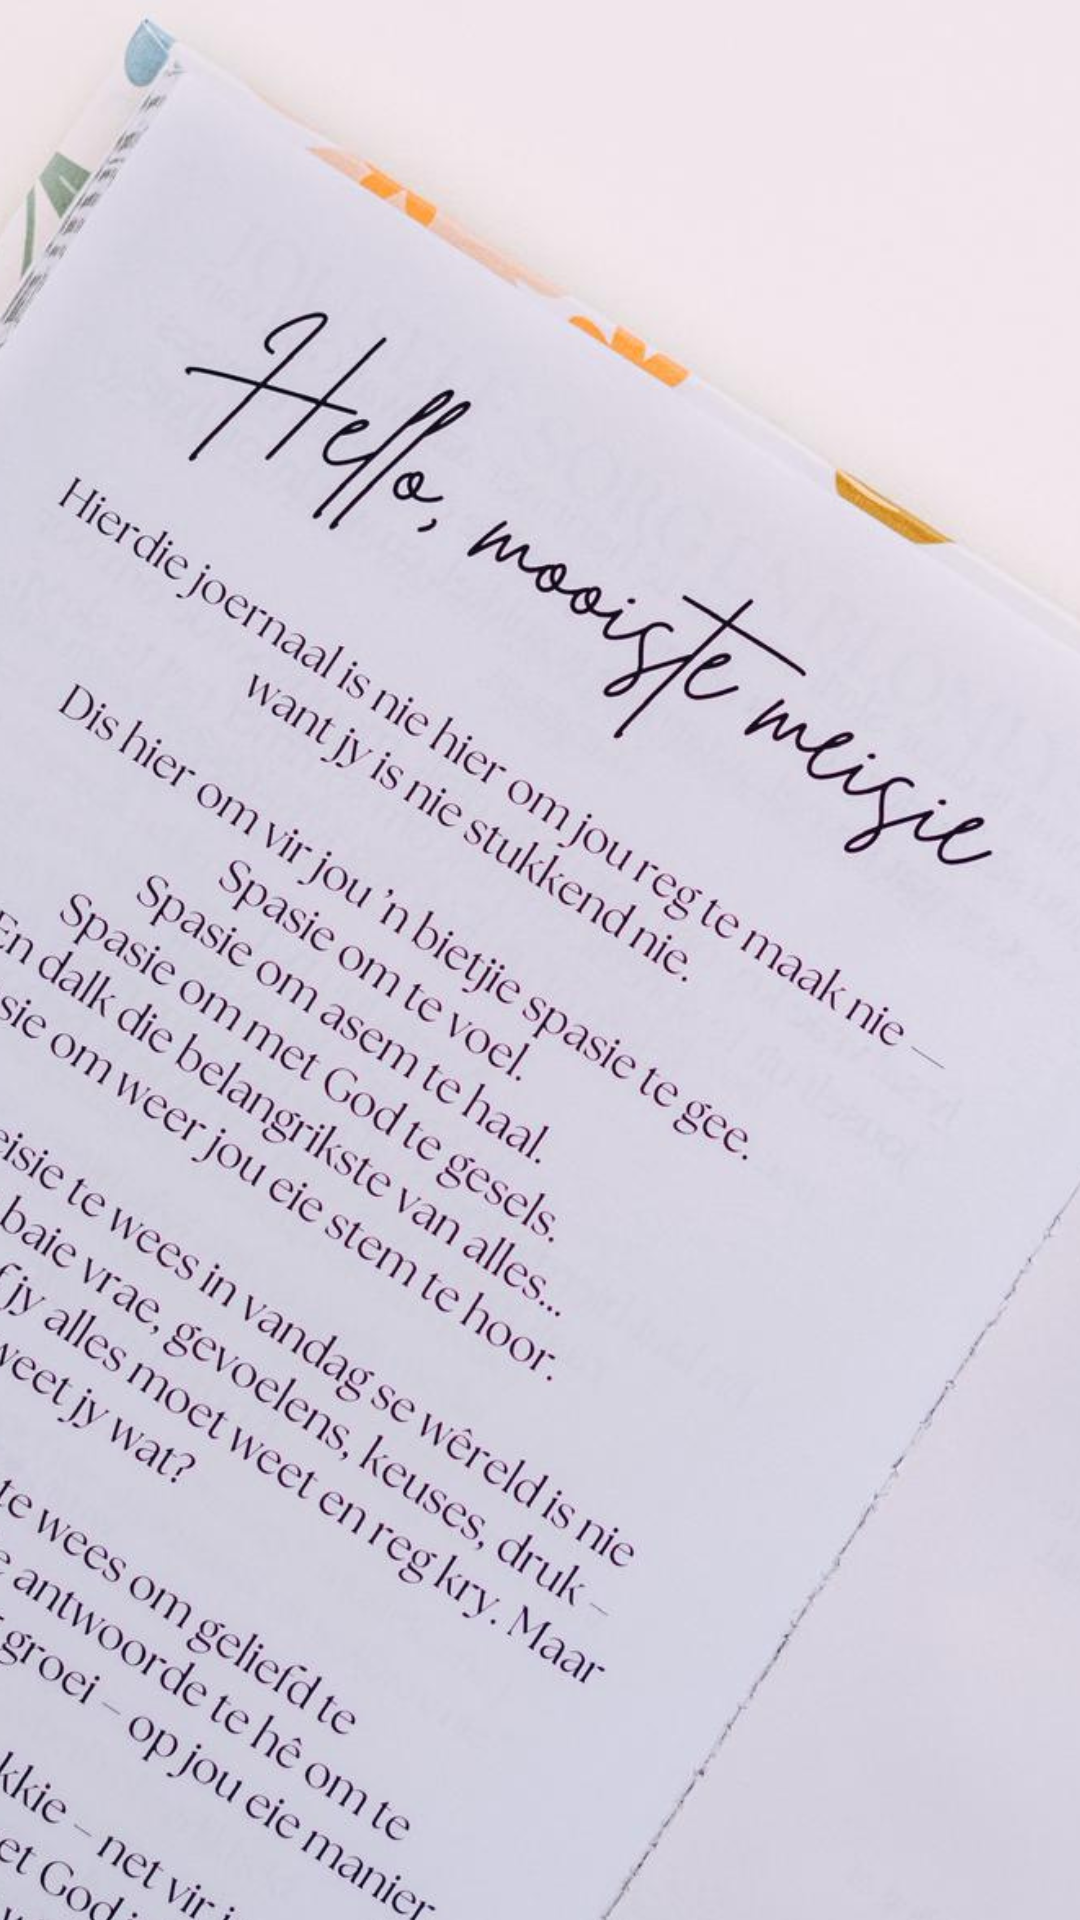 Hello, mooiste meisie
Hierdie joernaal is nie hier om jou reg te maak nie –
want jy is nie stukkend nie.
Dis hier om vir jou 'n bietjie spasie te gee.
Spasie om te voel.
Spasie om asem te haal.
Spasie om met God te gesels.
En dalk die belangrikste van alles...
om weer jou eie stem te hoor.
te wees in vandag se wêreld is nie
baie vrae, gevoelens, keuses, druk –
jy alles moet weet en reg kry. Maar
weet jy wat?
te wees om geliefd te
antwoorde te hê om te
groei – op jou eie manier
– net vir
God